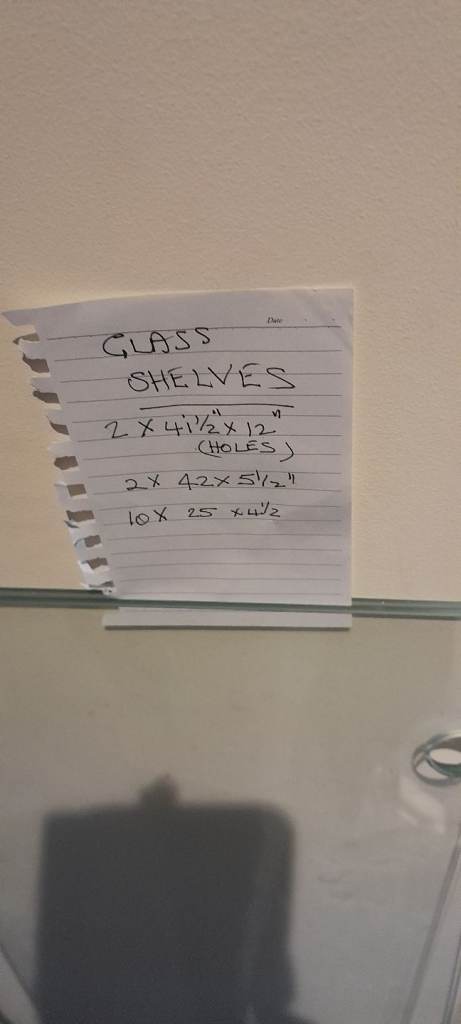 Date
GLASS
SHELVES
2 X 41 1/2" X 12"
(HOLES)
2X 42 X 5 1/2"
10X 25 X 4 1/2